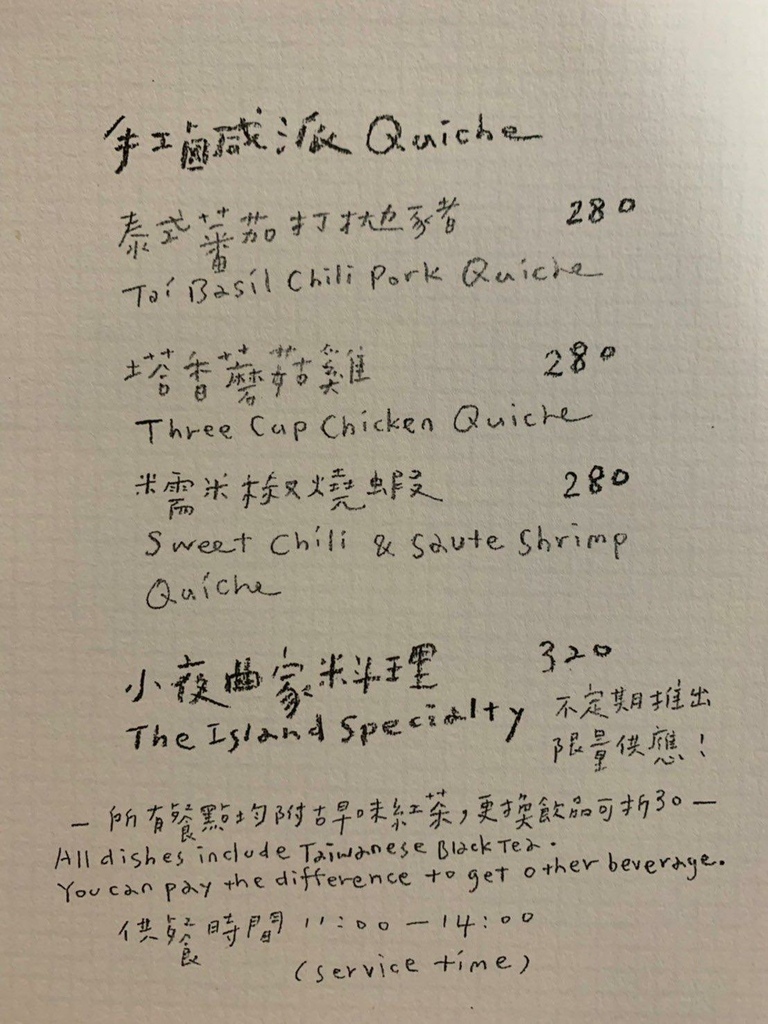 手工鹹派 Quiche
泰式蕃茄打拋豬 280
Tai Basil Chili Pork Quiche
塔香蘑菇雞 280
Three Cup Chicken Quiche
糯米椒燒蝦 280
Sweet Chili & Saute Shrimp
Quiche
小夜曲家料理 320
The Island Specialty
不定期推出
限量供應！
— 所有餐點均附古早味紅茶，更換飲品可折30 —
All dishes include Taiwanese Black Tea.
You can pay the difference to get other beverage.
供餐時間 11:00 — 14:00
(service time)